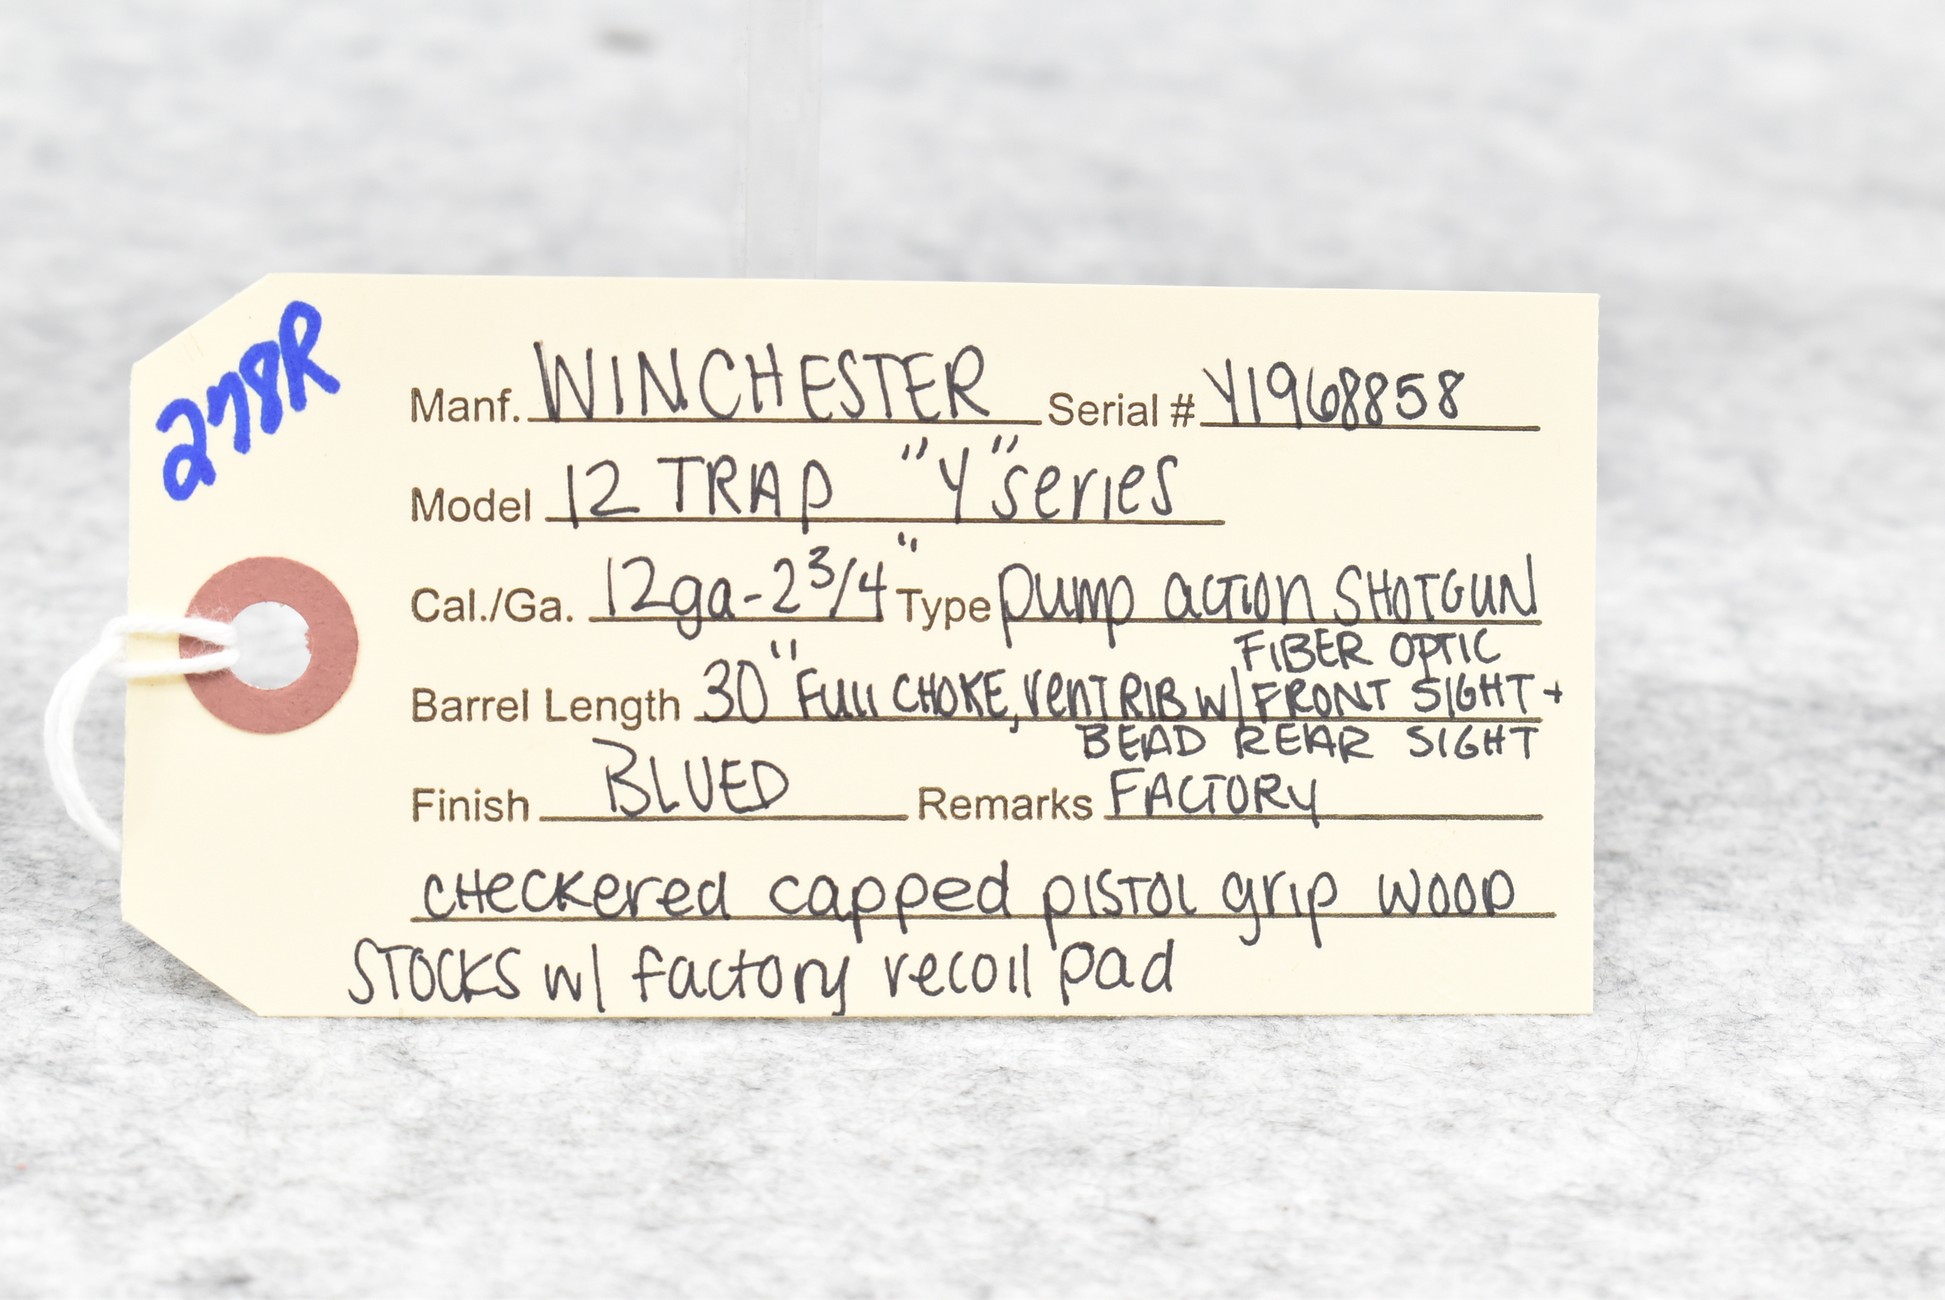 278R
Manf. WINCHESTER Serial # Y1968858
Model 12 TRAP "Y" series
Cal./Ga. 12ga-2 3/4" Type pump action SHOTGUN
FIBER OPTIC
Barrel Length 30" Full CHOKE, vent RIB w/ FRONT SIGHT +
BEAD REAR SIGHT
Finish BLUED Remarks FACTORY
checkered capped pistol grip wood
STOCKS w/ factory recoil pad